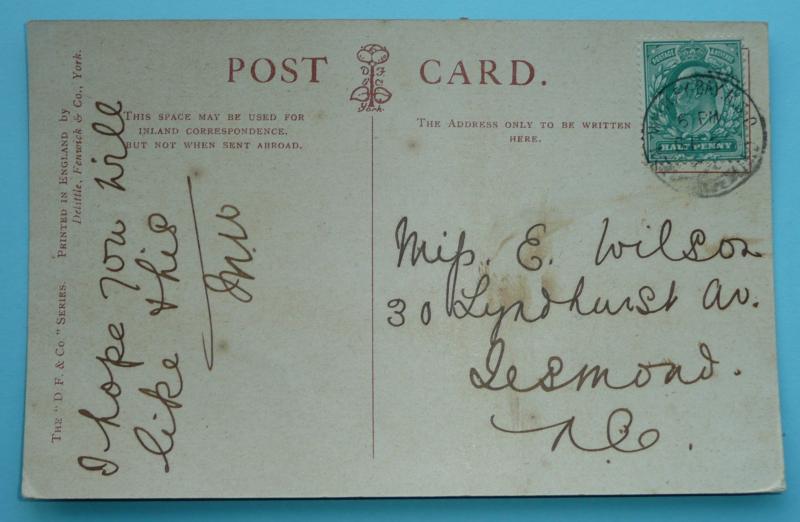 POST CARD.
D F & Co York.
THIS SPACE MAY BE USED FOR
INLAND CORRESPONDENCE.
BUT NOT WHEN SENT ABROAD.
THE ADDRESS ONLY TO BE WRITTEN
HERE.
THE "D. F. & Co." SERIES. PRINTED IN ENGLAND by
Delittle, Fenwick & Co., York.
I hope you will
like this
M.W
Miss. E. Wilson
30 Lyndhurst Av.
Jesmond.
N.C.
POSTAGE & REVENUE
HALFPENNY
BAY
5 PM